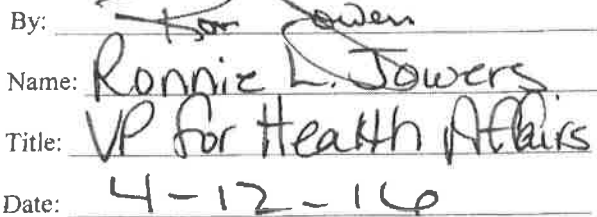 By: Ron Jowers
Name: Ronnie L. Jowers
Title: VP for Health Affairs
Date: 4-12-16